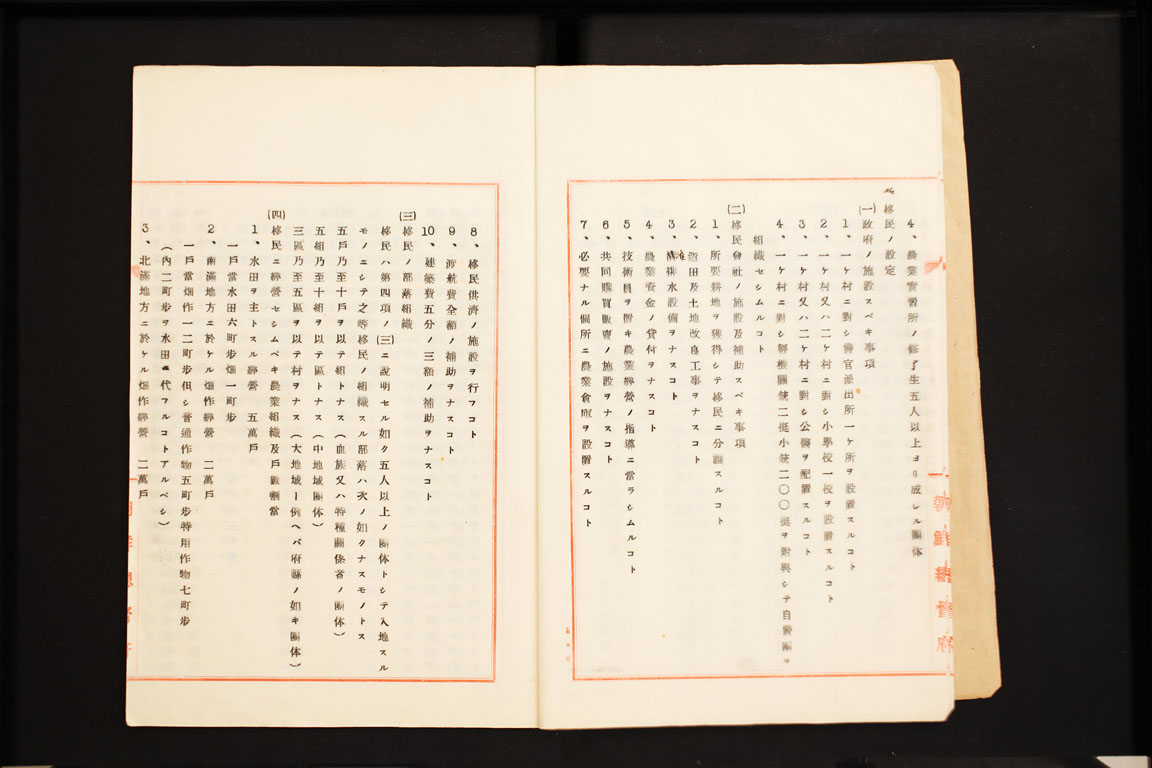 4、農業實習所ノ修了生五人以上ヨリ成レル團体
移民ノ設定
(一)政府ノ施設スベキ事項
1、一ケ村ニ對シ警官派出所一ケ所ヲ設置スルコト
2、一ケ村又ハ二ケ村ニ對シ小學校一校ヲ設置スルコト
3、一ケ村又ハ二ケ村ニ對シ公醫ヲ配置スルコト
4、一ケ村ニ對シ輕機關銃二挺小銃二〇〇挺ヲ附與シテ自警團ヲ
組織セシムルコト
(二)移民會社ノ施設及補助スベキ事項
1、所要耕地ヲ獲得シテ移民ニ分讓スルコト
2、造田及土地改良工事ヲナスコト
3、灌排水設備ヲナスコト
4、農業資金ノ貸付ヲナスコト
5、技術員ヲ置キ農業經營ノ指導ニ當ラシムルコト
6、共同購買販賣ノ施設ヲナスコト
7、必要ナル個所ニ農業倉庫ヲ設置スルコト
朝鮮總督府
8、移民供濟ノ施設ヲ行フコト
9、渡航費全額ノ補助ヲナスコト
10、建築費五分ノ三額ノ補助ヲナスコト
(三)移民ノ部落組織
移民ハ第四項ノ(三)ニ說明セル如ク五人以上ノ團体トシテ入地スル
モノニシテ之等移民ノ組織スル部落ハ次ノ如クナスモノトス
五戶乃至十戶ヲ以テ組トナス(血族又ハ特種關係者ノ團体)
五組乃至十組ヲ以テ區トナス(中地域團体)
三區乃至五區ヲ以テ村ヲナス(大地域ー例ヘバ府縣ノ如キ團体)
(四)移民ニ經營セシムベキ農業組織及戶數割當
1、水田ヲ主トスル經營 五萬戶
一戶當水田六町步畑一町步
2、南滿地方ニ於ケル畑作經營 二萬戶
一戶當畑作一二町步但シ普通作物五町步特用作物七町步
(內二町步ヲ水田ニ代フルコトアルベシ)
3、北滿地方ニ於ケル畑作經營 二萬戶